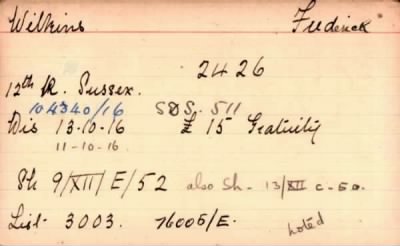 Wilkins Frederick
2426
12th R. Sussex.
104340/16 SDS. 511
Dis 13-10-16 £ 15 Gratuity
11-10-16
Sh 9/XII/E/52 also Sh- 13/XII C-EQ.
List 3003. 76005/E.
noted